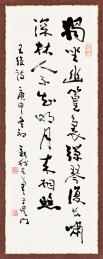 獨坐幽篁裏彈琴復長嘯
深林人不知明月來相照
王維詩 庚申